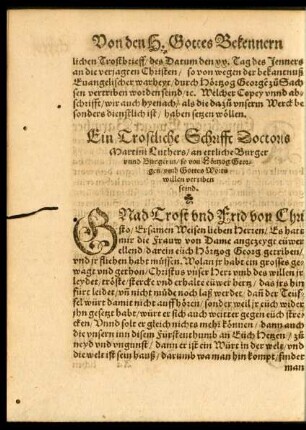 Von den H. Gottes Bekennern
lichen Trostbrieff / des Datum den xx. Tag des Jenners
an die verjagten Christen / so von wegen der bekantnuß
Euangelischer warheyt / durch Hörtzog George zů Sach
sen vertriben worden seind / ic. Welcher Copey vnnd ab-
schrifft / wir auch hyenach / als die da zů vnserm Werck be
sonders dienstlich ist / haben setzen wöllen.
Ein Trostliche Schrifft Doctoris
Martini Luthers / an etliche Burger
vnnd Burgerin / so von Hörtzog Geor-
gen / vmb Gottes Worts
willen vertriben
seind.
GNad Trost vnd Frid von Chri
sto / Ersamen Weisen lieben Herren / Es hat
mir die Frauw von Dame angezeygt euwer
ellend / darein euch Hörtzog Georg getriben /
vnd jr fliehen habt müssen. Wolan jr habt ein grosses ge-
wagt vnd gethon / Christus vnser Herr vmb des willen jr
leydet / tröste / stercke vnd erhalte euwer hertz / das jrs hin
fürt leidet / vñ nicht müde noch laß werdet / dañ der Teuf-
fel würt damit nicht auff hören / sonder weil jr euch wider
jhn gesetzt habt / würt er sich auch weitter gegen euch stre-
cken. Vnnd solt er gleich nichts mehr können / dann auch
die vnsern inn disem Fürstenthumb an Euch Hetzen / zů
neyd vnd vngunst / dann er ist ein Würt in der welt / vnd
die welt ist sein hauß / darumb wa man hin kompt / finder
man